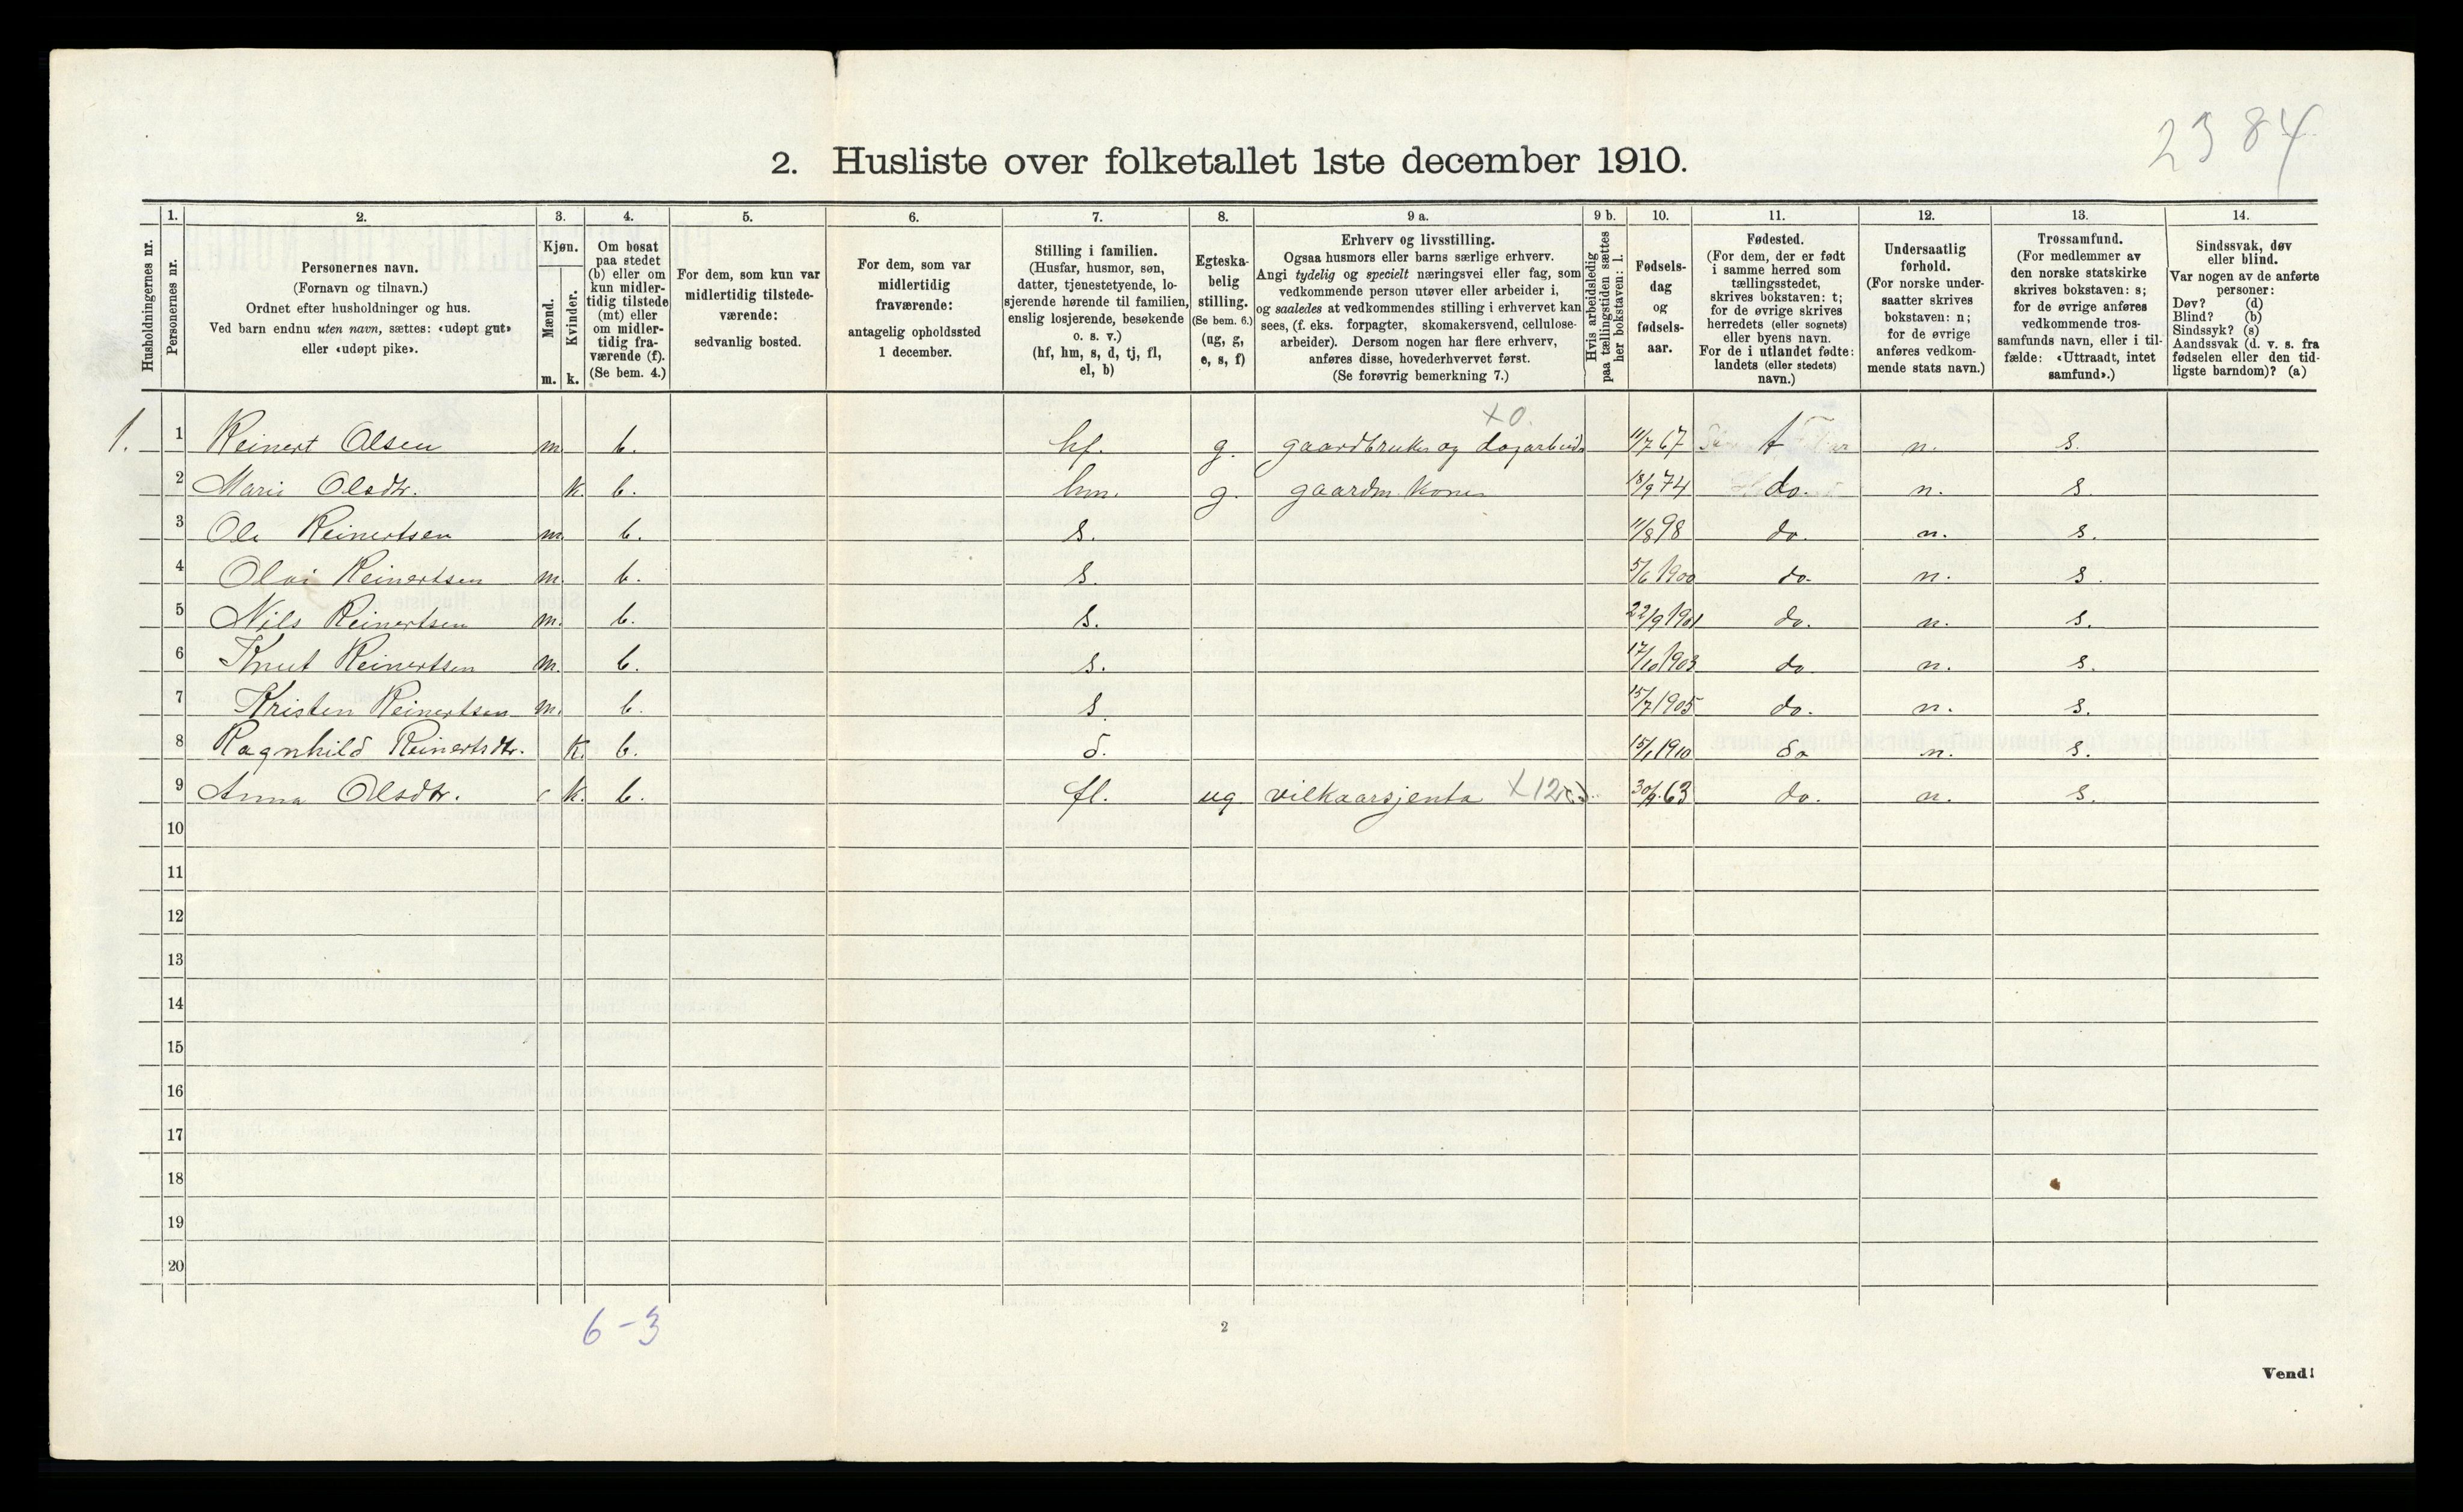 2384
2. Husliste over folketallet 1ste december 1910.
Husholdningernes nr.
1. Personernes nr.
2. Personernes navn.
(Fornavn og tilnavn.)
Ordnet efter husholdninger og hus.
Ved barn endnu uten navn, sættes: «udøpt gut»
eller «udøpt pike».
3. Kjøn.
Mænd. m.
Kvinder. k.
4. Om bosat
paa stedet
(b) eller om
kun midler-
tidig tilstede
(mt) eller
om midler-
tidig fra-
værende (f).
(Se bem. 4.)
5. For dem, som kun var
midlertidig tilstede-
værende:
sedvanlig bosted.
6. For dem, som var
midlertidig
fraværende:
antagelig opholdssted
1 december.
7. Stilling i familien.
(Husfar, husmor, søn,
datter, tjenestetyende, lo-
sjerende hørende til familien,
enslig losjerende, besøkende
o. s. v.)
(hf, hm, s, d, tj, fl,
el, b)
8. Egteska-
belig
stilling.
(Se bem. 6.)
(ug, g,
e, s, f)
9 a. Erhverv og livsstilling.
Ogsaa husmors eller barns særlige erhverv.
Angi tydelig og specielt næringsvei eller fag, som
vedkommende person utøver eller arbeider i,
og saaledes at vedkommendes stilling i erhvervet kan
sees, (f. eks. forpagter, skomakersvend, cellulose-
arbeider). Dersom nogen har flere erhverv,
anføres disse, hovederhvervet først.
(Se forøvrig bemerkning 7.)
9 b. Hvis arbeidsledig
paa tællingstiden sættes
her bokstaven: l.
10. Fødsels-
dag
og
fødsels-
aar.
11. Fødested.
(For dem, der er født
i samme herred som
tællingsstedet,
skrives bokstaven: t;
for de øvrige skrives
herredets (eller sognets)
eller byens navn.
For de i utlandet fødte:
landets (eller stedets)
navn.)
12. Undersaatlig
forhold.
(For norske under-
saatter skrives
bokstaven: n;
for de øvrige
anføres vedkom-
mende stats navn.)
13. Trossamfund.
(For medlemmer av
den norske statskirke
skrives bokstaven: s;
for de øvrige anføres
vedkommende tros-
samfunds navn, eller i til-
fælde: «Uttraadt, intet
samfund».)
14. Sindssvak, døv
eller blind.
Var nogen av de anførte
personer:
Døv? (d)
Blind? (b)
Sindssyk? (s)
Aandssvak (d. v. s. fra
fødselen eller den tid-
ligste barndom)? (a)
X0.
1. 1 Reinert Olsen m. b. hf. g. gaardbruker og dagarbeid. 11/7 67 t n. s.
2 Marie Olsdtr. k. b. hm. g. gaardm. kone 18/9 74 do. n. s.
3 Ole Reinertsen m. b. s. 11/8 98 do. n. s.
4 Olai Reinertsen m. b. s. 5/6 1900 do. n. s.
5 Nils Reinertsen m. b. s. 22/9 1901 do. n. s.
6 Knut Reinertsen m. b. s. 17/10 1903 do n. s.
7 Kristen Reinertsen m. b. s. 15/7 1905 do. n. s.
8 Ragnhild Reinertsdtr. k. b. d. 15/1 1910 do n. s.
9 Anna Olsdtr. k. b. fl. ug vilkaarsjenta X12 63 do. n. s.
10
11
12
13
14
15
16
17
18
19
20
6-3
2
Vend!